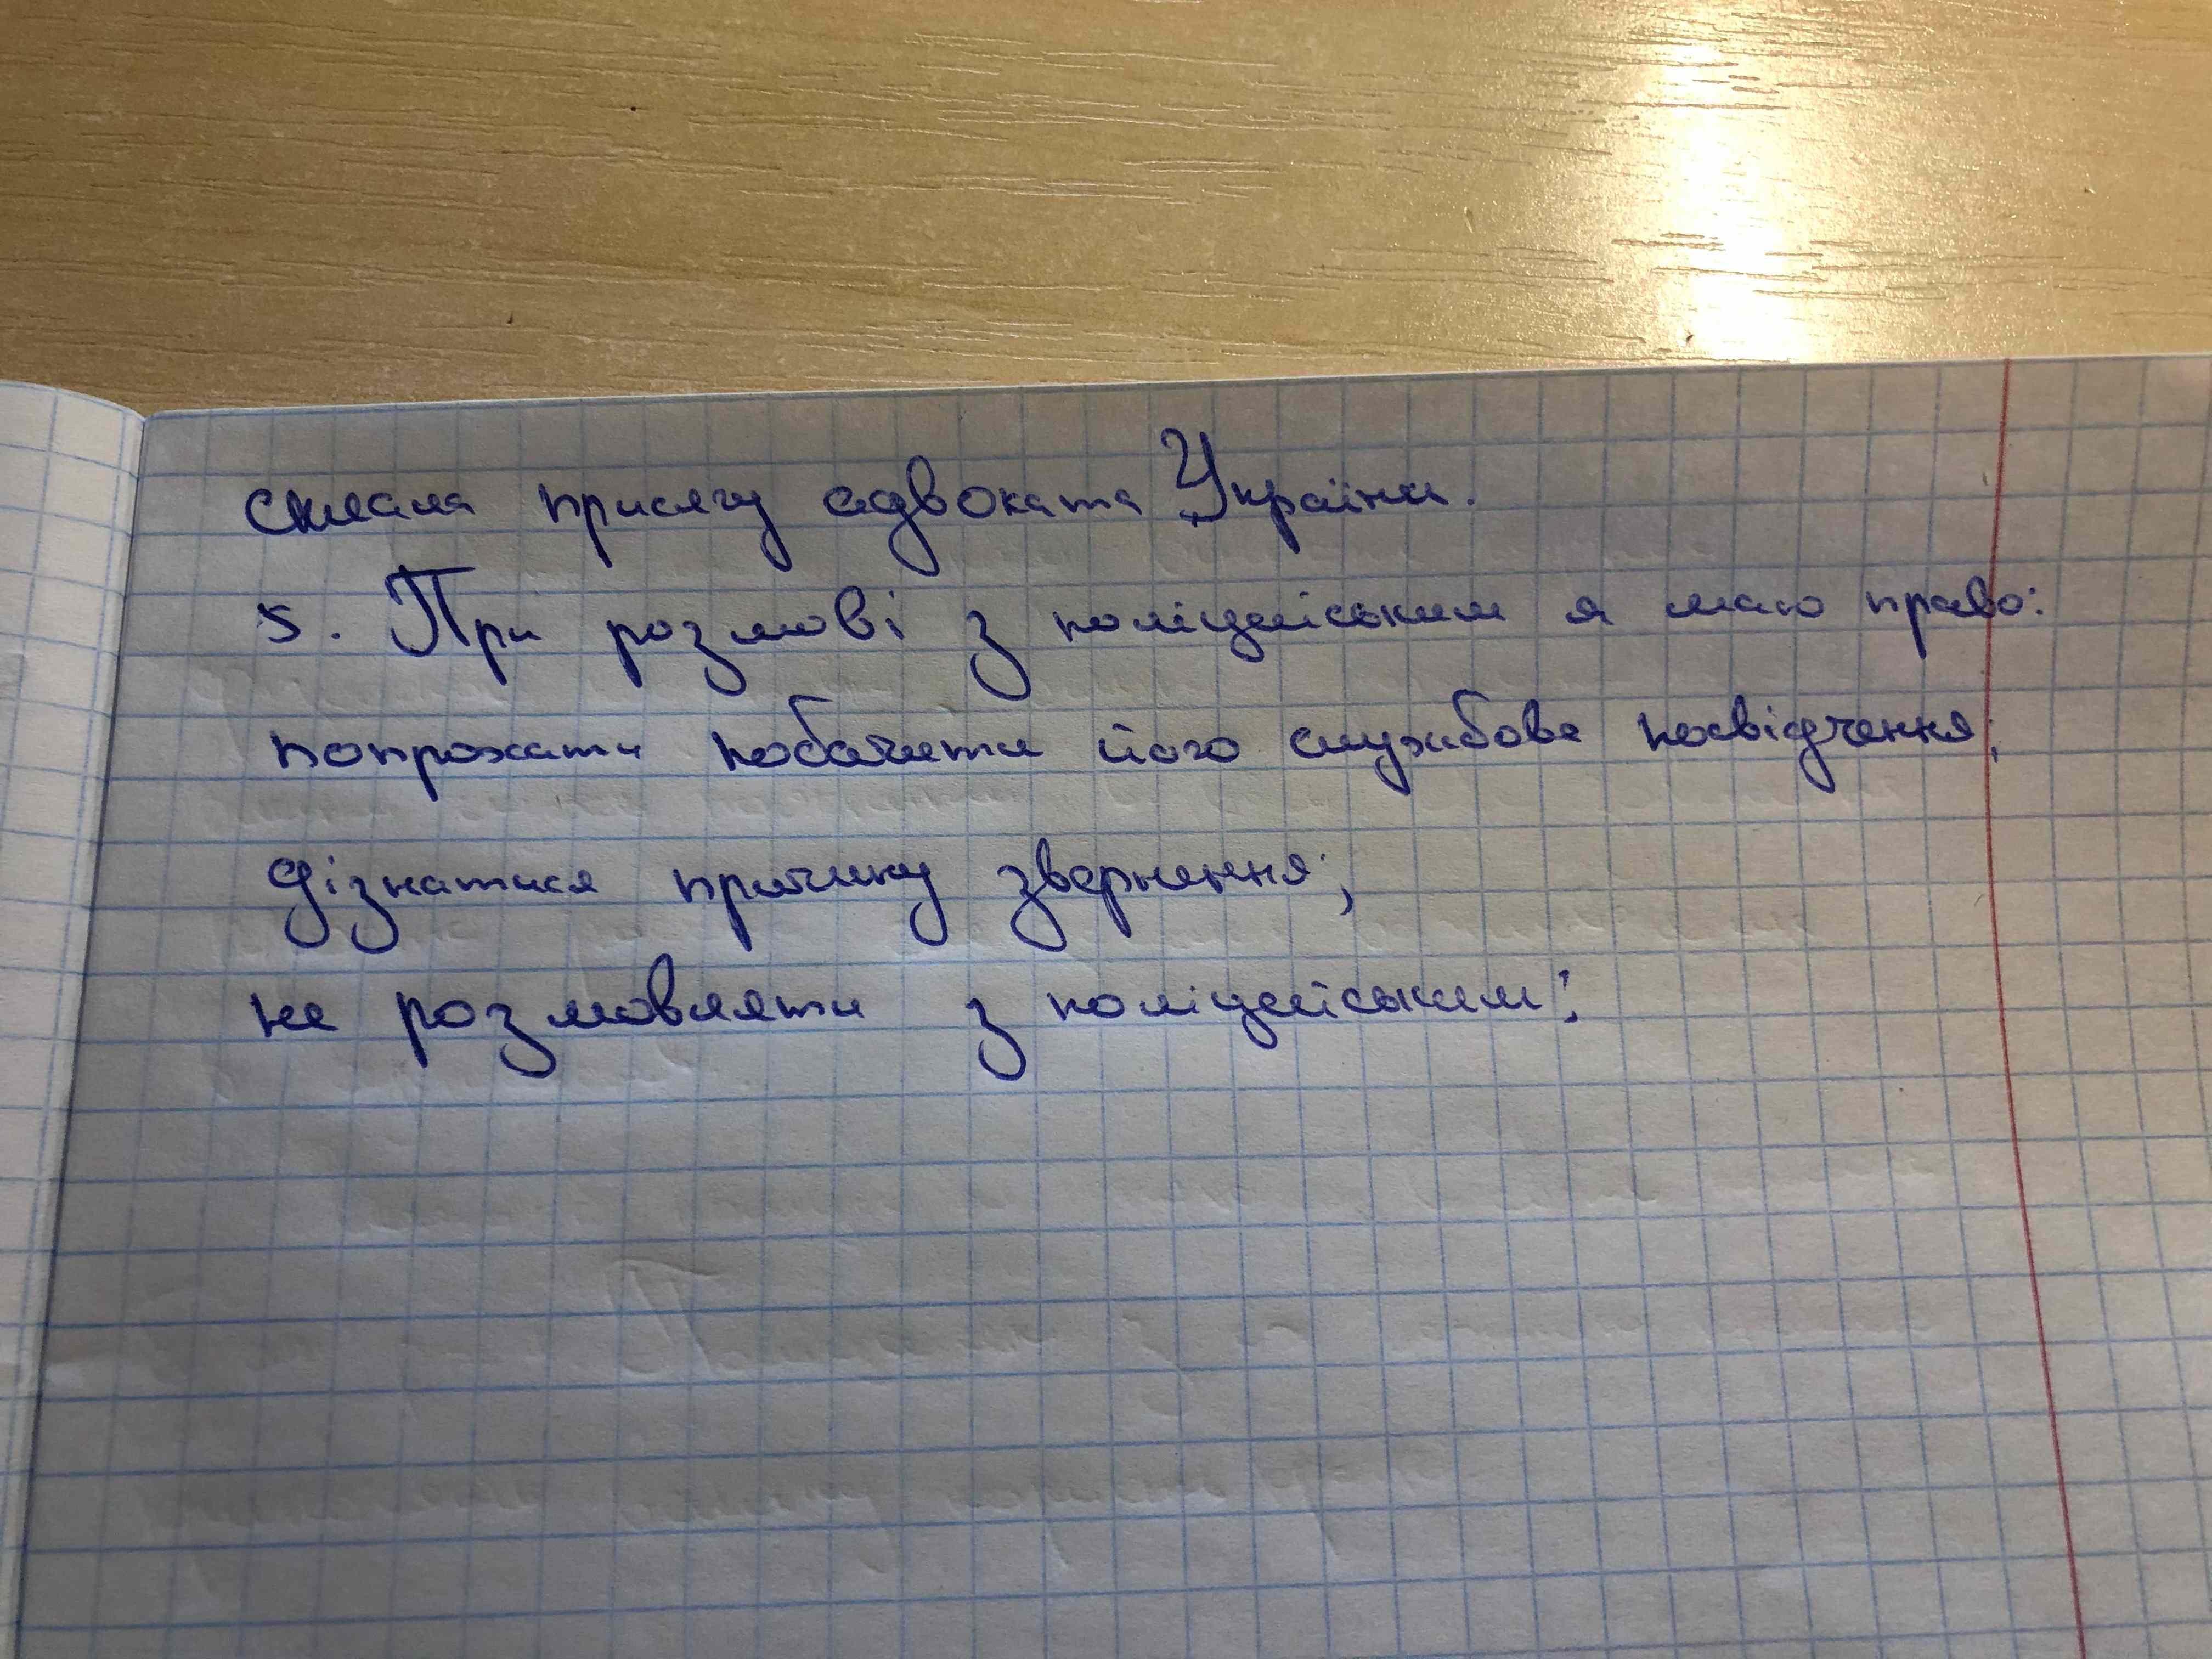 склала присягу адвоката України.
5. При розмові з поліцейським я маю право:
попрохати побачити його службове посвідчення;
дізнатися причину звернення;
не розмовляти з поліцейським;